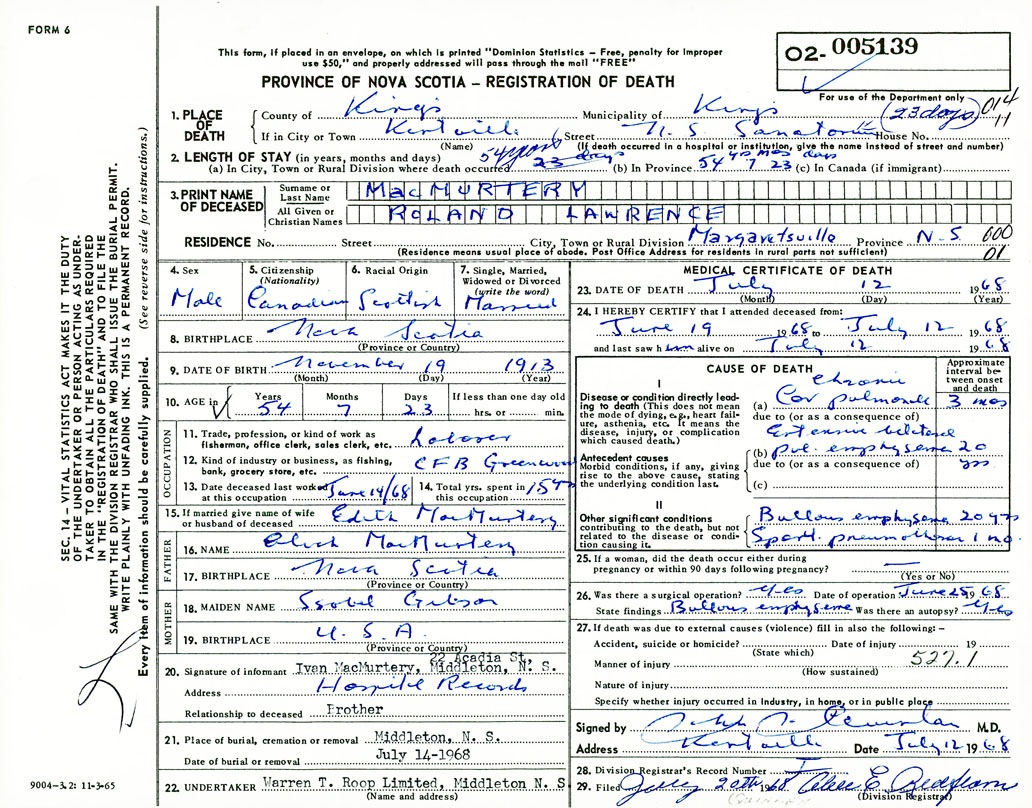 FORM 6
This form, if placed in an envelope, on which is printed "Dominion Statistics – Free, penalty for improper
use $50," and properly addressed will pass through the mail "FREE"
PROVINCE OF NOVA SCOTIA – REGISTRATION OF DEATH
O2- 005139
For use of the Department only
014
11
1. PLACE OF DEATH
County of Kings Municipality of Kings (23 days)
If in City or Town Kentville Street N. S Sanatorium House No.
(Name) (If death occurred in a hospital or institution, give the name instead of street and number)
2. LENGTH OF STAY (in years, months and days) 54 years yrs mos days
(a) In City, Town or Rural Division where death occurred 23 days (b) In Province 54 7 23 (c) In Canada (if immigrant)
3. PRINT NAME OF DECEASED
Surname or Last Name MacMURTERY
All Given or Christian Names ROLAND LAWRENCE
RESIDENCE No. Street City, Town or Rural Division Margaretsville Province N.S. 000
(Residence means usual place of abode. Post Office Address for residents in rural parts not sufficient) 01
4. Sex Male
5. Citizenship (Nationality) Canadian
6. Racial Origin Scottish
7. Single, Married, Widowed or Divorced (write the word) Married
8. BIRTHPLACE Nova Scotia
(Province or Country)
9. DATE OF BIRTH November 19 1913
(Month) (Day) (Year)
10. AGE in Years 54 Months 7 Days 23 If less than one day old hrs. or min.
OCCUPATION
11. Trade, profession, or kind of work as fisherman, office clerk, sales clerk, etc. Laborer
12. Kind of industry or business, as fishing, bank, grocery store, etc. CFB Greenwood
13. Date deceased last worked at this occupation June 14/68
14. Total yrs. spent in this occupation 15 yrs
15. If married give name of wife or husband of deceased Edith MacMurtery
FATHER
16. NAME MacMurtery
17. BIRTHPLACE Nova Scotia
(Province or Country)
MOTHER
18. MAIDEN NAME Isobel Gibson
19. BIRTHPLACE U.S.A.
(Province or Country)
22 Acadia St.
20. Signature of informant Ivan MacMurtery, Middleton, N. S.
Address Hospital Records
Relationship to deceased Brother
21. Place of burial, cremation or removal Middleton, N. S.
Date of burial or removal July 14-1968
22. UNDERTAKER Warren T. Roop Limited, Middleton N. S.
(Name and address)
MEDICAL CERTIFICATE OF DEATH
23. DATE OF DEATH July 12 1968
(Month) (Day) (Year)
24. I HEREBY CERTIFY that I attended deceased from:
June 19 1968 to July 12 1968
and last saw him alive on July 12 1968
CAUSE OF DEATH
Approximate interval between onset and death
I
Disease or condition directly leading to death (This does not mean the mode of dying, e.g., heart failure, asthenia, etc. It means the disease, injury, or complication which caused death.)
Chronic
(a) Cor pulmonale 3 mos
due to (or as a consequence of)
Extensive bilateral
Antecedent causes
Morbid conditions, if any, giving rise to the above cause, stating the underlying condition last.
(b) pul. emphysema 20 yrs.
due to (or as a consequence of)
(c)
II
Other significant conditions contributing to the death, but not related to the disease or condition causing it.
Bullous emphysema 20 yrs
Spont. pneumothorax 1 mo.
25. If a woman, did the death occur either during pregnancy or within 90 days following pregnancy? —
(Yes or No)
26. Was there a surgical operation? Yes Date of operation June 25 1968
State findings Bullous emphysema Was there an autopsy? Yes
27. If death was due to external causes (violence) fill in also the following: –
Accident, suicide or homicide? Date of injury 19
(State which)
527.1
Manner of injury
(How sustained)
Nature of injury
Specify whether injury occurred in Industry, in home, or in public place
Signed by M.D.
Address Kentville Date July 12 1968
28. Division Registrar's Record Number
29. Filed July 20th 1968
(Division Registrar)
SEC. 14 – VITAL STATISTICS ACT MAKES IT THE DUTY
OF THE UNDERTAKER OR PERSON ACTING AS UNDERTAKER TO OBTAIN ALL THE PARTICULARS REQUIRED
IN THE "REGISTRATION OF DEATH" AND TO FILE THE
SAME WITH THE DIVISION REGISTRAR WHO SHALL ISSUE THE BURIAL PERMIT.
WRITE PLAINLY WITH UNFADING INK. THIS IS A PERMANENT RECORD.
Every item of information should be carefully supplied. (See reverse side for instructions.)
9004–3.2: 11-3-65